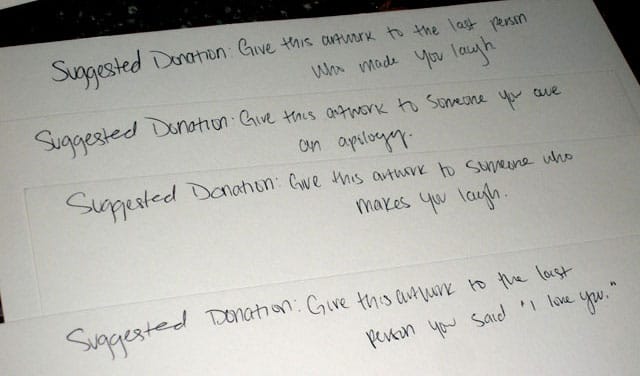 Suggested Donation: Give this artwork to the last person
who made you laugh
Suggested Donation: Give this artwork to someone you owe
an apilogy.
Suggested Donation: Give this artwork to someone who
makes you laugh.
Suggested Donation: Give this artwork to the last
person you said "I love you."